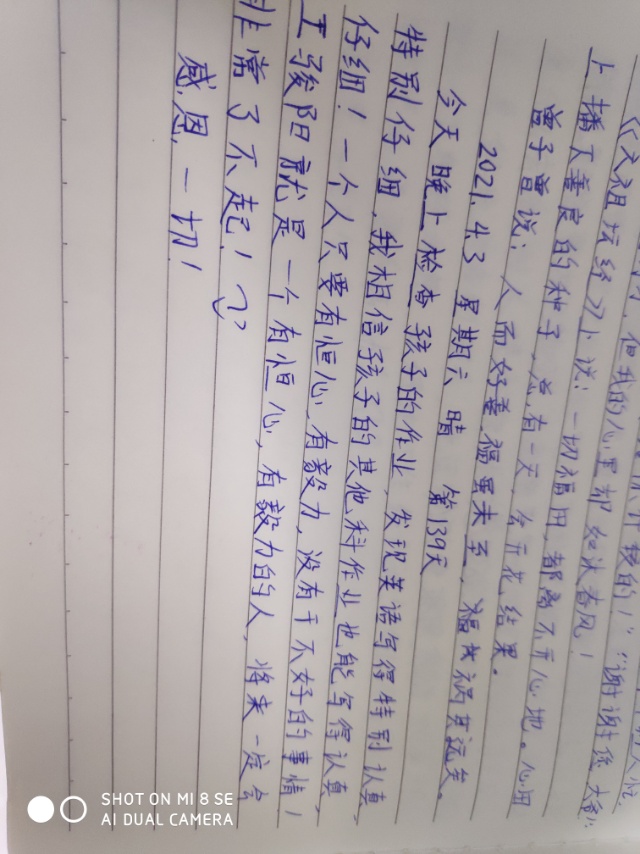 但我的心里却如沐春风！
接的！”“谢谢您 大爹！”
《六祖坛经》上说：一切福田，都离不开心地。心田
上播下善良的种子，总有一天，会开花结果。
曾子曾说：人而好善，福虽未至，祸其远矣。
2021.4.3 星期六 晴 第139天
今天晚上检查孩子的作业，发现英语写得特别认真，
特别仔细，我相信孩子的其他科作业也能写得认真，
仔细！一个人只要有恒心，有毅力，没有干不好的事情！
王骏阳就是一个有恒心，有毅力的人，将来一定会
非常了不起！
感恩一切！
SHOT ON MI 8 SE
AI DUAL CAMERA